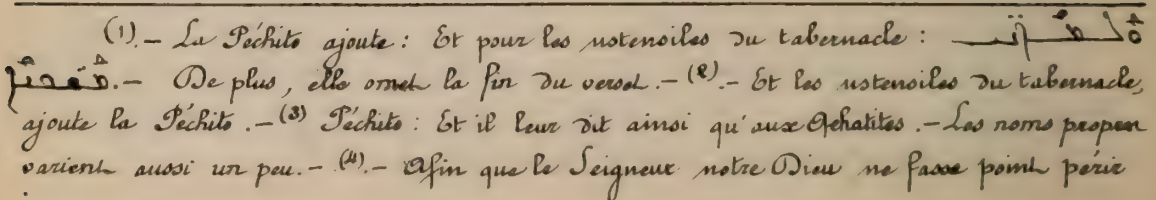 (1).- La Péchito ajoute : Et pour les ustensiles du tabernacle :
.- De plus, elle omet la fin du verset.- (2).- Et les ustensiles du tabernacle,
ajoute la Péchito.- (3) Péchito : Et il leur dit ainsi qu'aux Qehatites.- Les noms propres
varient aussi un peu.- (4).- Afin que le Seigneur notre Dieu ne fasse point périr